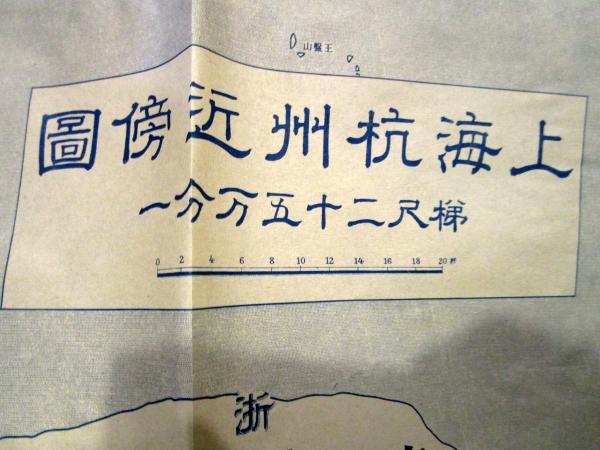 王盤山
上海杭州近傍圖
梯尺二十五万分一
0 2 4 6 8 10 12 14 16 18 20
浙